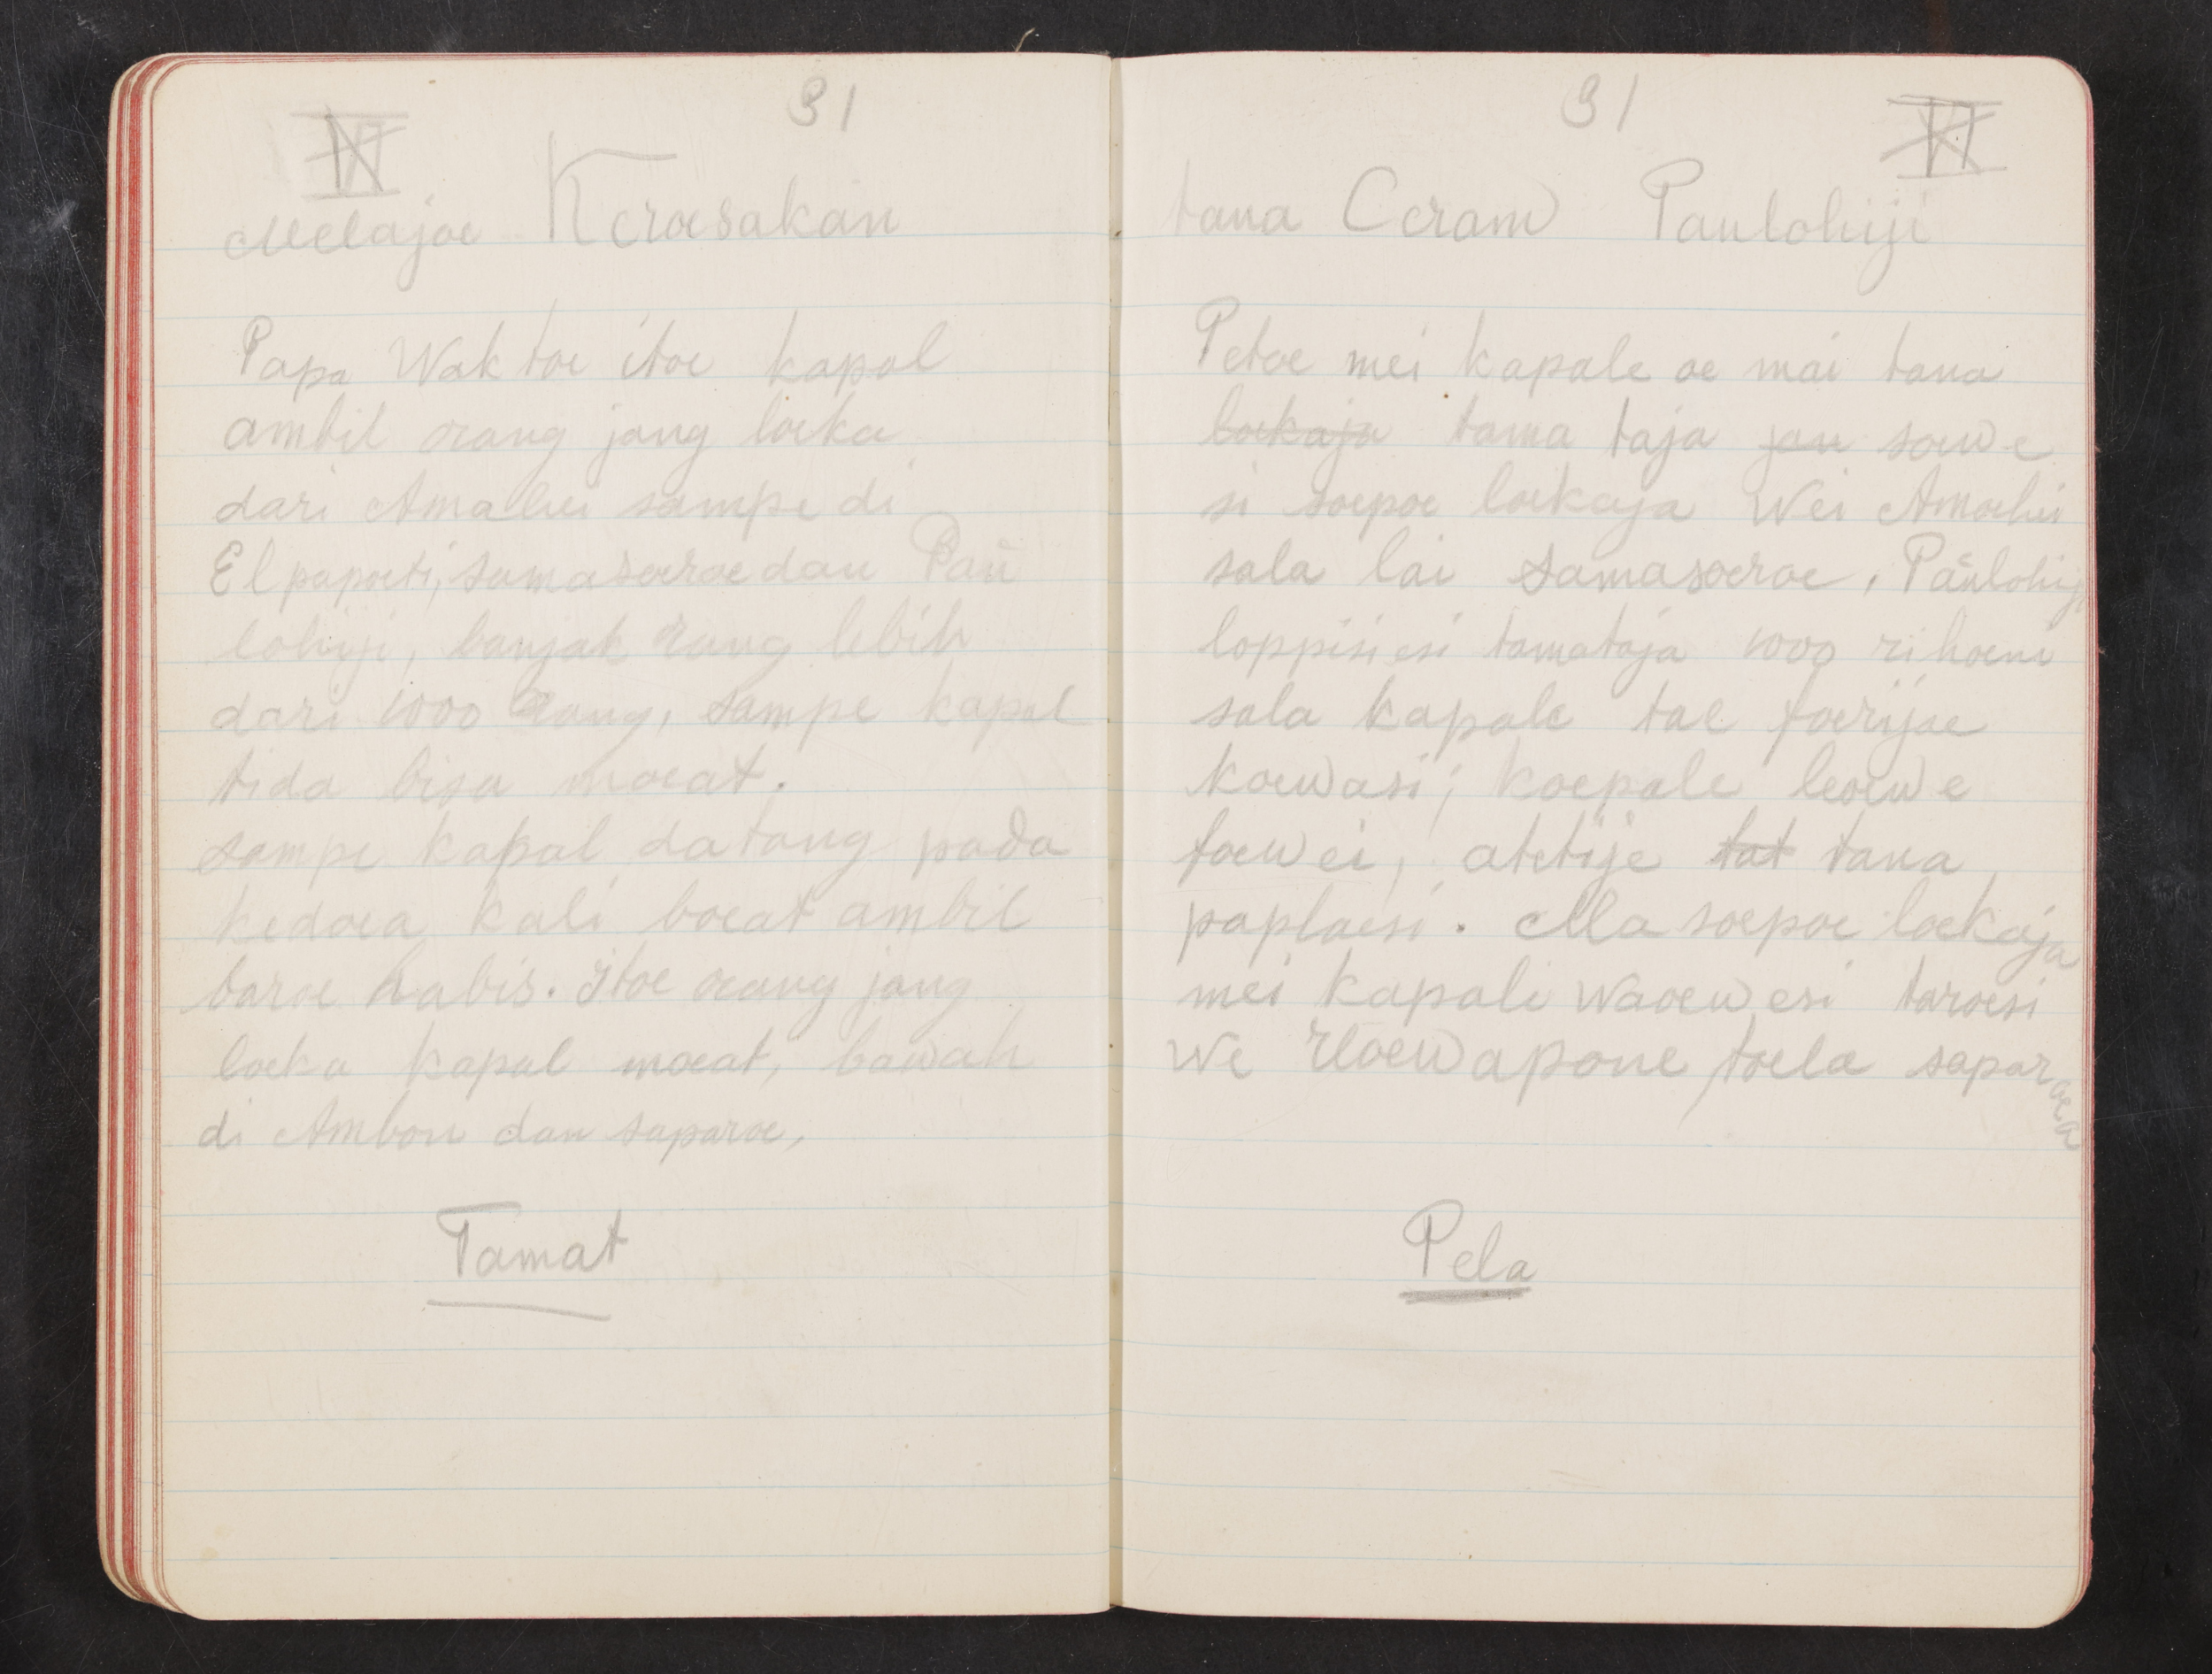 31
IV
Melajoe Keroesakan
Papa Waktoe itoe kapal
ambil orang jang loeka
dari Amahei sampe di
Elpapoeti, samasoeroe dan Paü
lohiji, banjak orang lebih
dari 1000 orang, sampe kapal
tida bisa moeat.
sampe kapal datang pada
kedoea kali boeat ambil
baroe habis. itoe orang jang
loeka kapal moeat, bawah
di Ambon dan saparoe,
Tamat
31
VI
tana Ceram Paulohiji
Petoe mei kapale oe mai tana
loekaja tama taja jan soewe
si soepoe loekaja Wei Amaehei
sala lai Samasoeroe, Paülohiji
loppisiesi tamataja 1000 rihoeni
sala kapale tae foerijae
koewasi; koepale leoewe
foewei, atetije tat tana
paplaesi. Ma soepoe loekaja
mei kapali waoewesi taroesi
We Roewapone toela saparoea
Pela